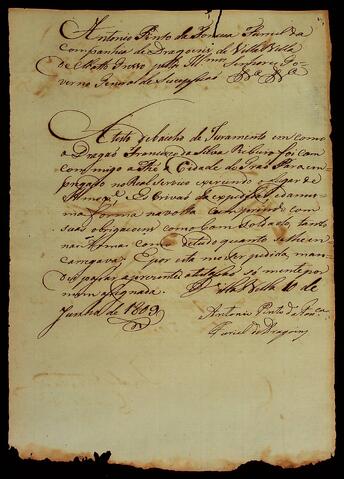 Antonio Pinto da Fonceca Furriel da
Companhia de Dragoens de Villa Bella
de Matto Grosso pellos Illmos Senhores Go
verno Geral de Sucessaõ &ª &ª
Atesto debaicho de Juramento em como
o Dragaõ Francisco da Silva Ribeiro foi com
comigo a The a Cidade do Graõ Para em
pregado no Real Serviço exercendo o lugar de
Escrivaõ da expediçaõ e da mes
ma forma na volta cumprindo com
suas obrigacoens como bom soldado tanto
nas Armas como de tudo quanto se lhe en
caregava. E por esta me ser pedida, man
dei passar a prezente atestaçaõ só mente por
mim asignada. Villa Bella 10 de
Junho de 1809
Antonio Pinto da Fonca
Furiel de Dragoins